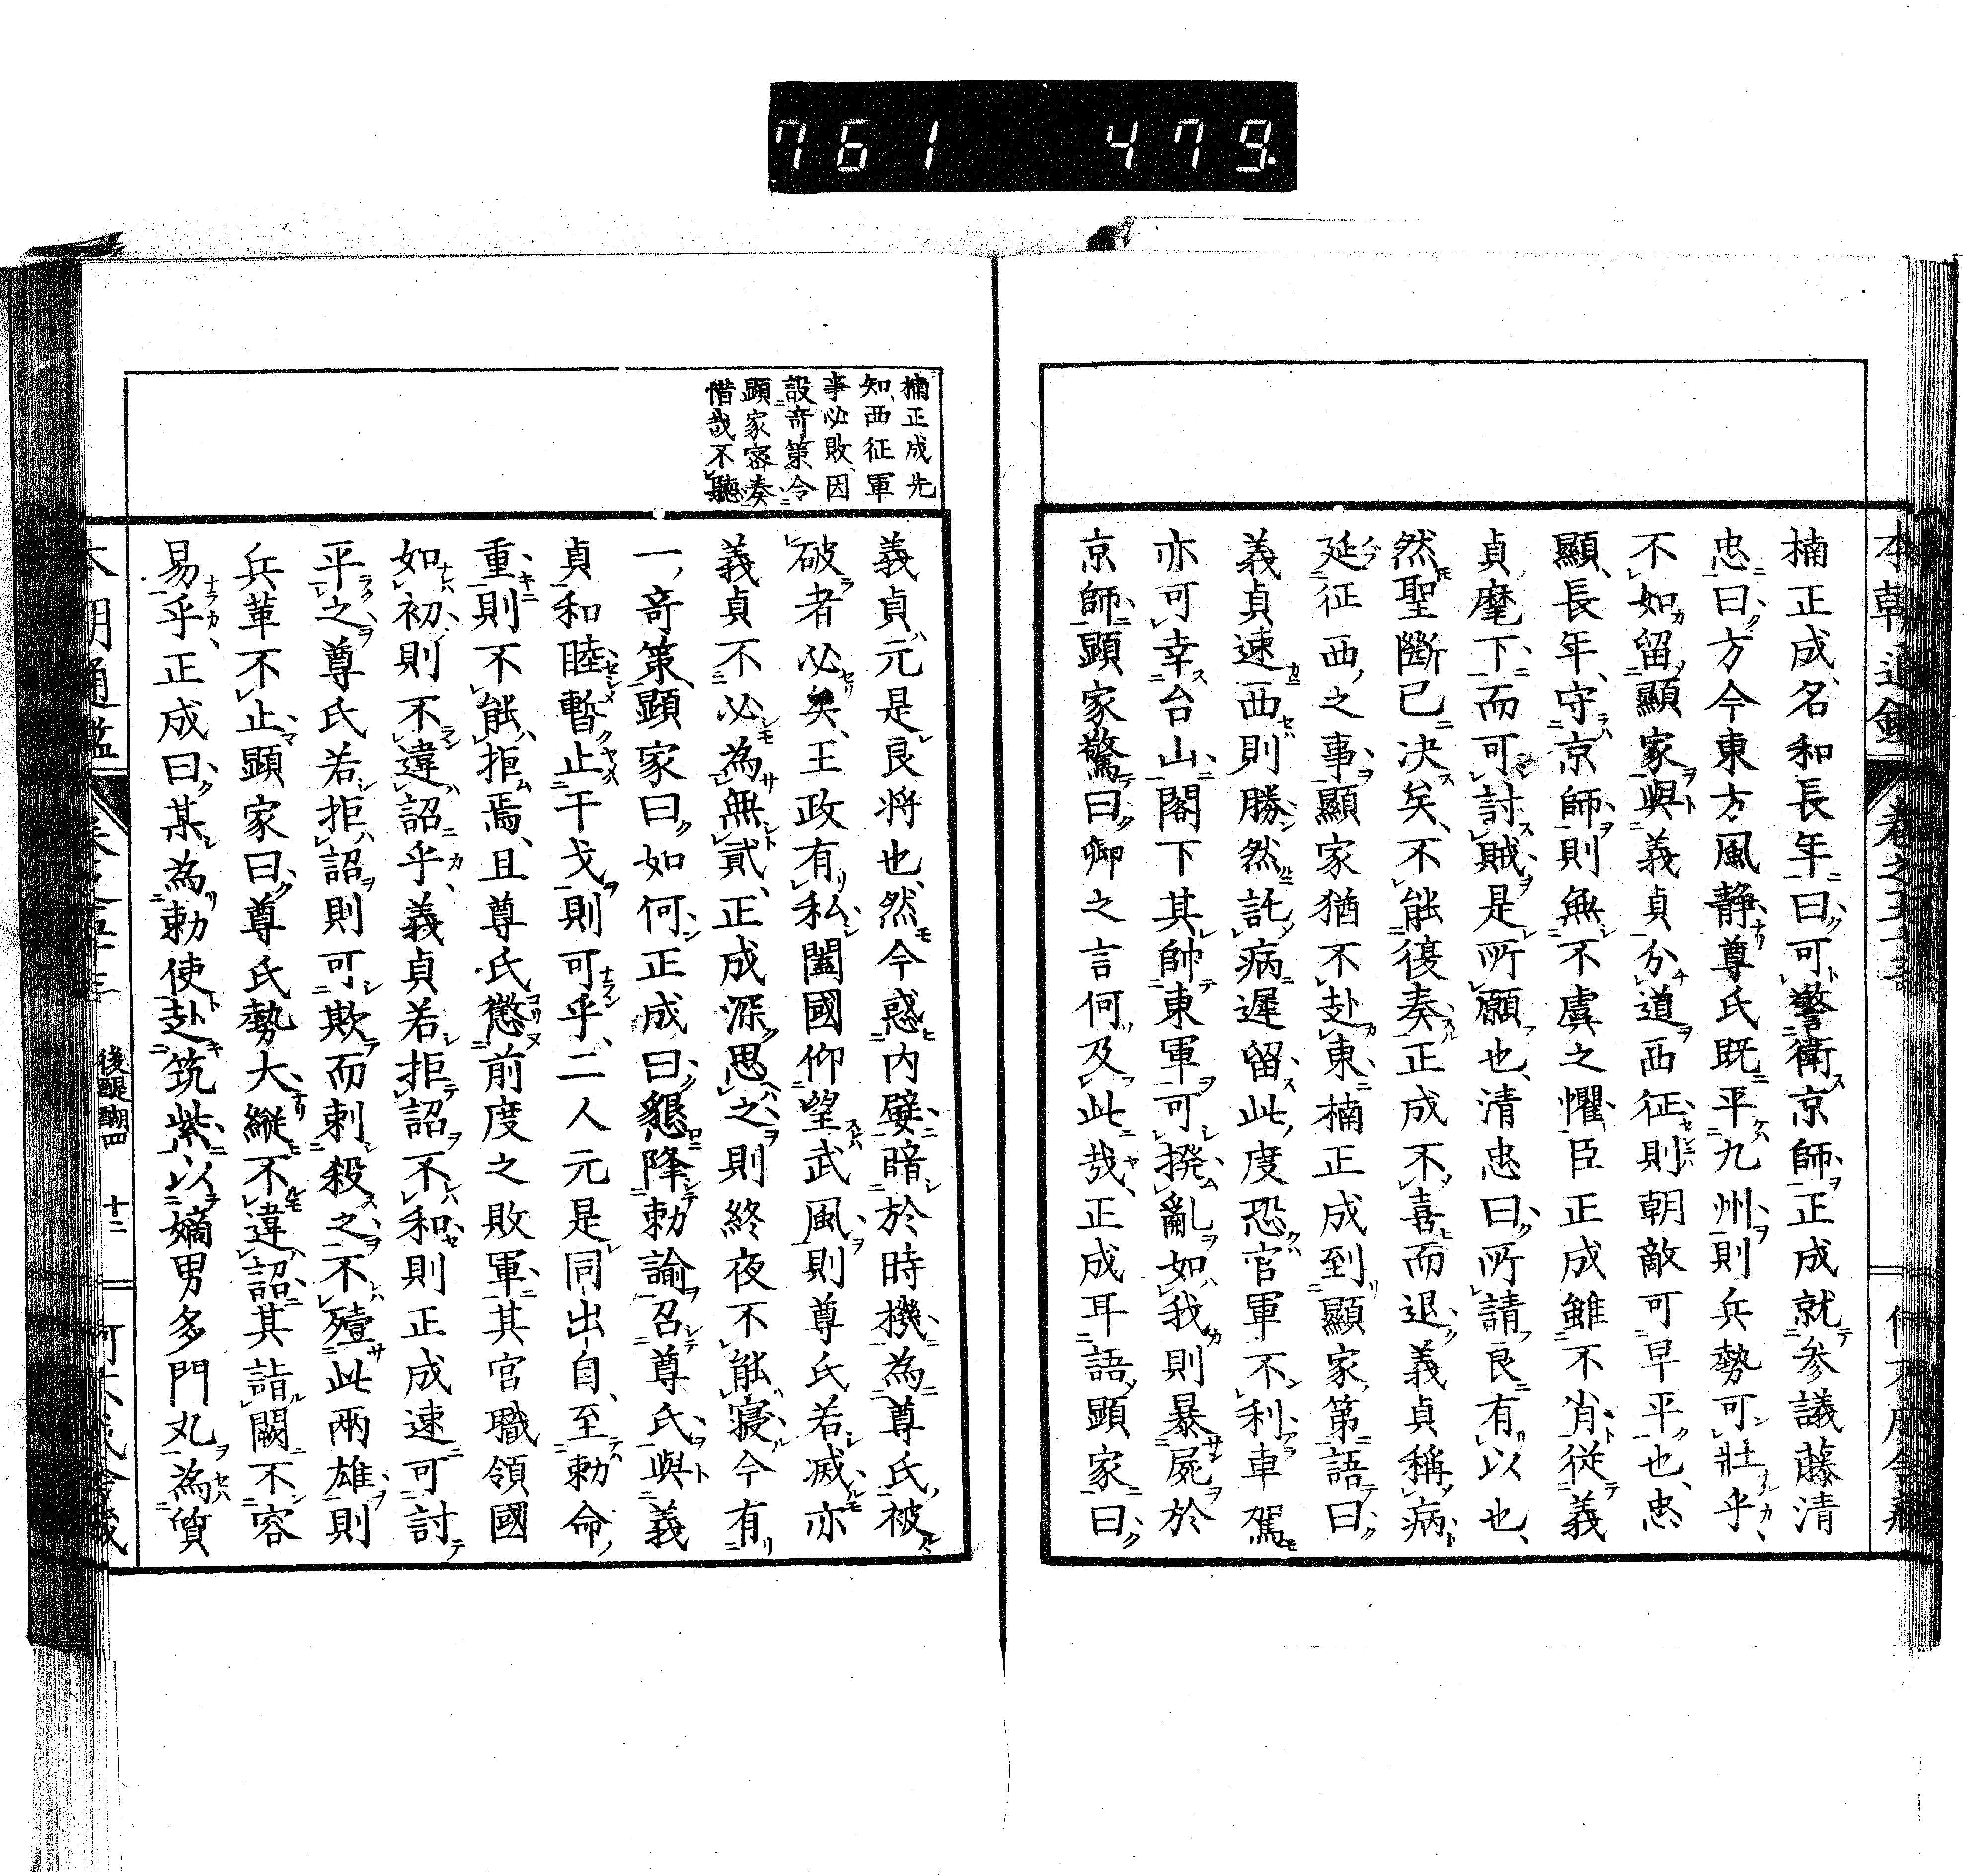 761 479
楠正成、名和長年曰可警衛京師正成就參議藤清
忠曰方今東方風静尊氏既平九州則兵勢可壯乎、
不如留顯家與義貞分道西征則朝敵可早平也、忠
顯、長年、守京師則無不虞之懼臣正成雖不肖從義
貞麾下而可討賊是所願也、清忠曰所請良有以也、
然聖斷已决矣、不能復奏正成不喜而退義貞稱病
延征西之事顯家猶不赴東楠正成到顯家第語曰
義貞速西則勝然託病遲留此度恐官軍不利車駕
亦可幸台山閣下其帥東軍可撥亂如我則暴屍於
京師顯家驚曰卿之言何及此哉、正成耳語顯家曰
楠正成先
知西征軍
事必敗、因
設竒策令
顕家密奏
惜哉不聽
義貞元是良将也、然今惑内嬖暗於時機為尊氏被
破者必矣、王政有私闔國仰望武風則尊氏若滅亦
義貞不必為無貳、正成深思之則終夜不能寢今有
一竒策顕家曰如何正成曰懇降勅諭召尊氏與義
貞和睦暫止干戈則可乎、二人元是同出自、至勅命
重則不能拒焉、且尊氏懲前度之敗軍其官職領國
如初則不違詔乎義貞若拒詔不和則正成速可討
平之尊氏若拒詔則可欺而刺殺之不殪此兩雄則
兵革不止顕家曰尊氏勢大縱不違詔其詣闕不容
易乎正成曰某為勅使赴筑紫以嫡男多門丸為質
後醍醐四 十二